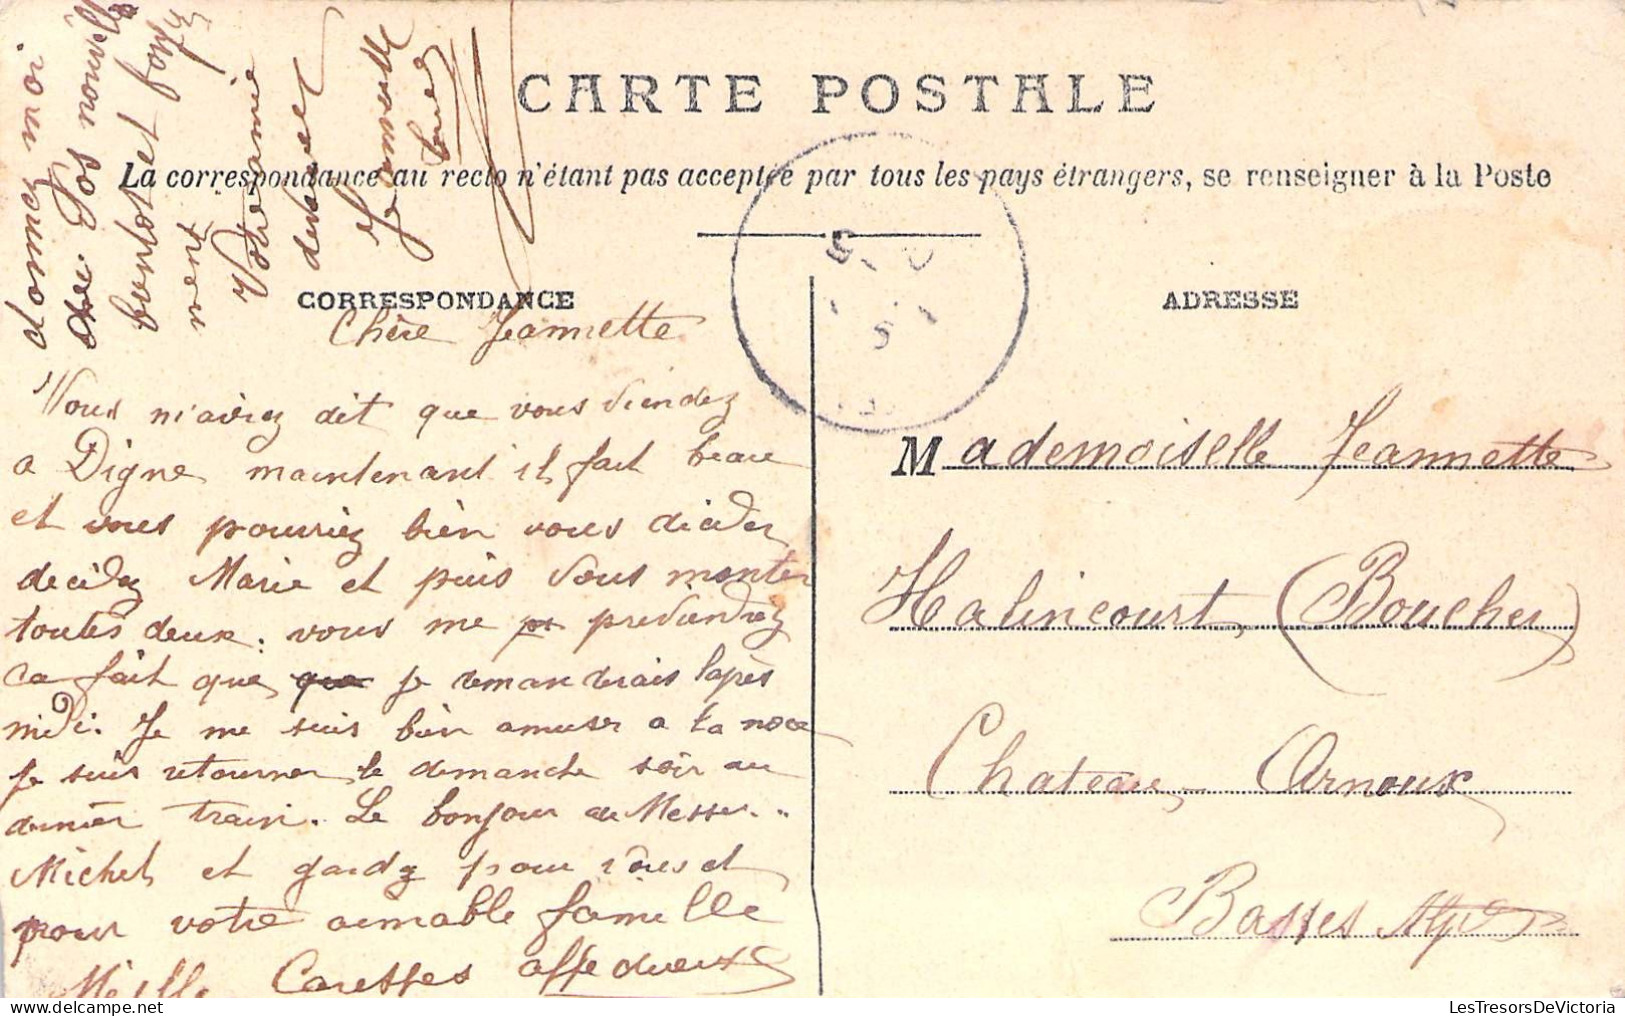 CARTE POSTALE
La correspondance au recto n'étant pas acceptée par tous les pays étrangers, se renseigner à la Poste
CORRESPONDANCE
Chère Jeannette
Vous m'aviez dit que vous viendez
a Digne maintenant il fait beau
et vous pourriez bien vous dicider
decidez Marie et puis vous monter
toutes deux. vous me previendrez
ca fait que que je demanderais l'après
midi. Je me suis bien amuser a la noce
Je suis retourner le dimanche soir au
dernier train. Le bonjour de Messer..
Michel et gardez pour vous et
pour votre aimable famille
Mille Caresses affedueux
donnez moi
de vos nouvelles
bientot et
Votre amie
devouee
Jeannette
ADRESSE
Mademoiselle Jeannette
Halincourt, (Boucher)
Chateau-Arnoux
Basses Alpes
LesTresorsDeVictoria